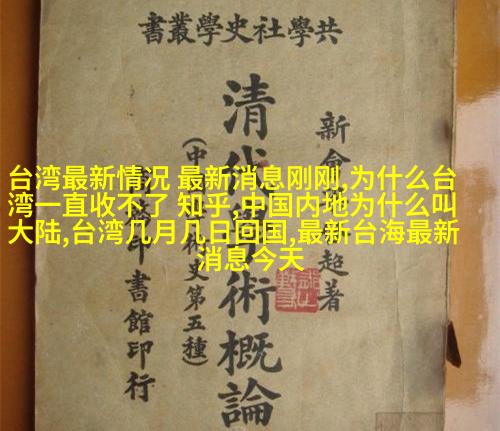 共學社史學叢書
新會超著
清代學術概論
(中術史第五種)
印書館印行
台湾最新情況 最新消息刚刚,为什么台
湾一直收不了 知乎,中国内地为什么叫
大陆,台湾几月几日回国,最新台海最新
消息今天